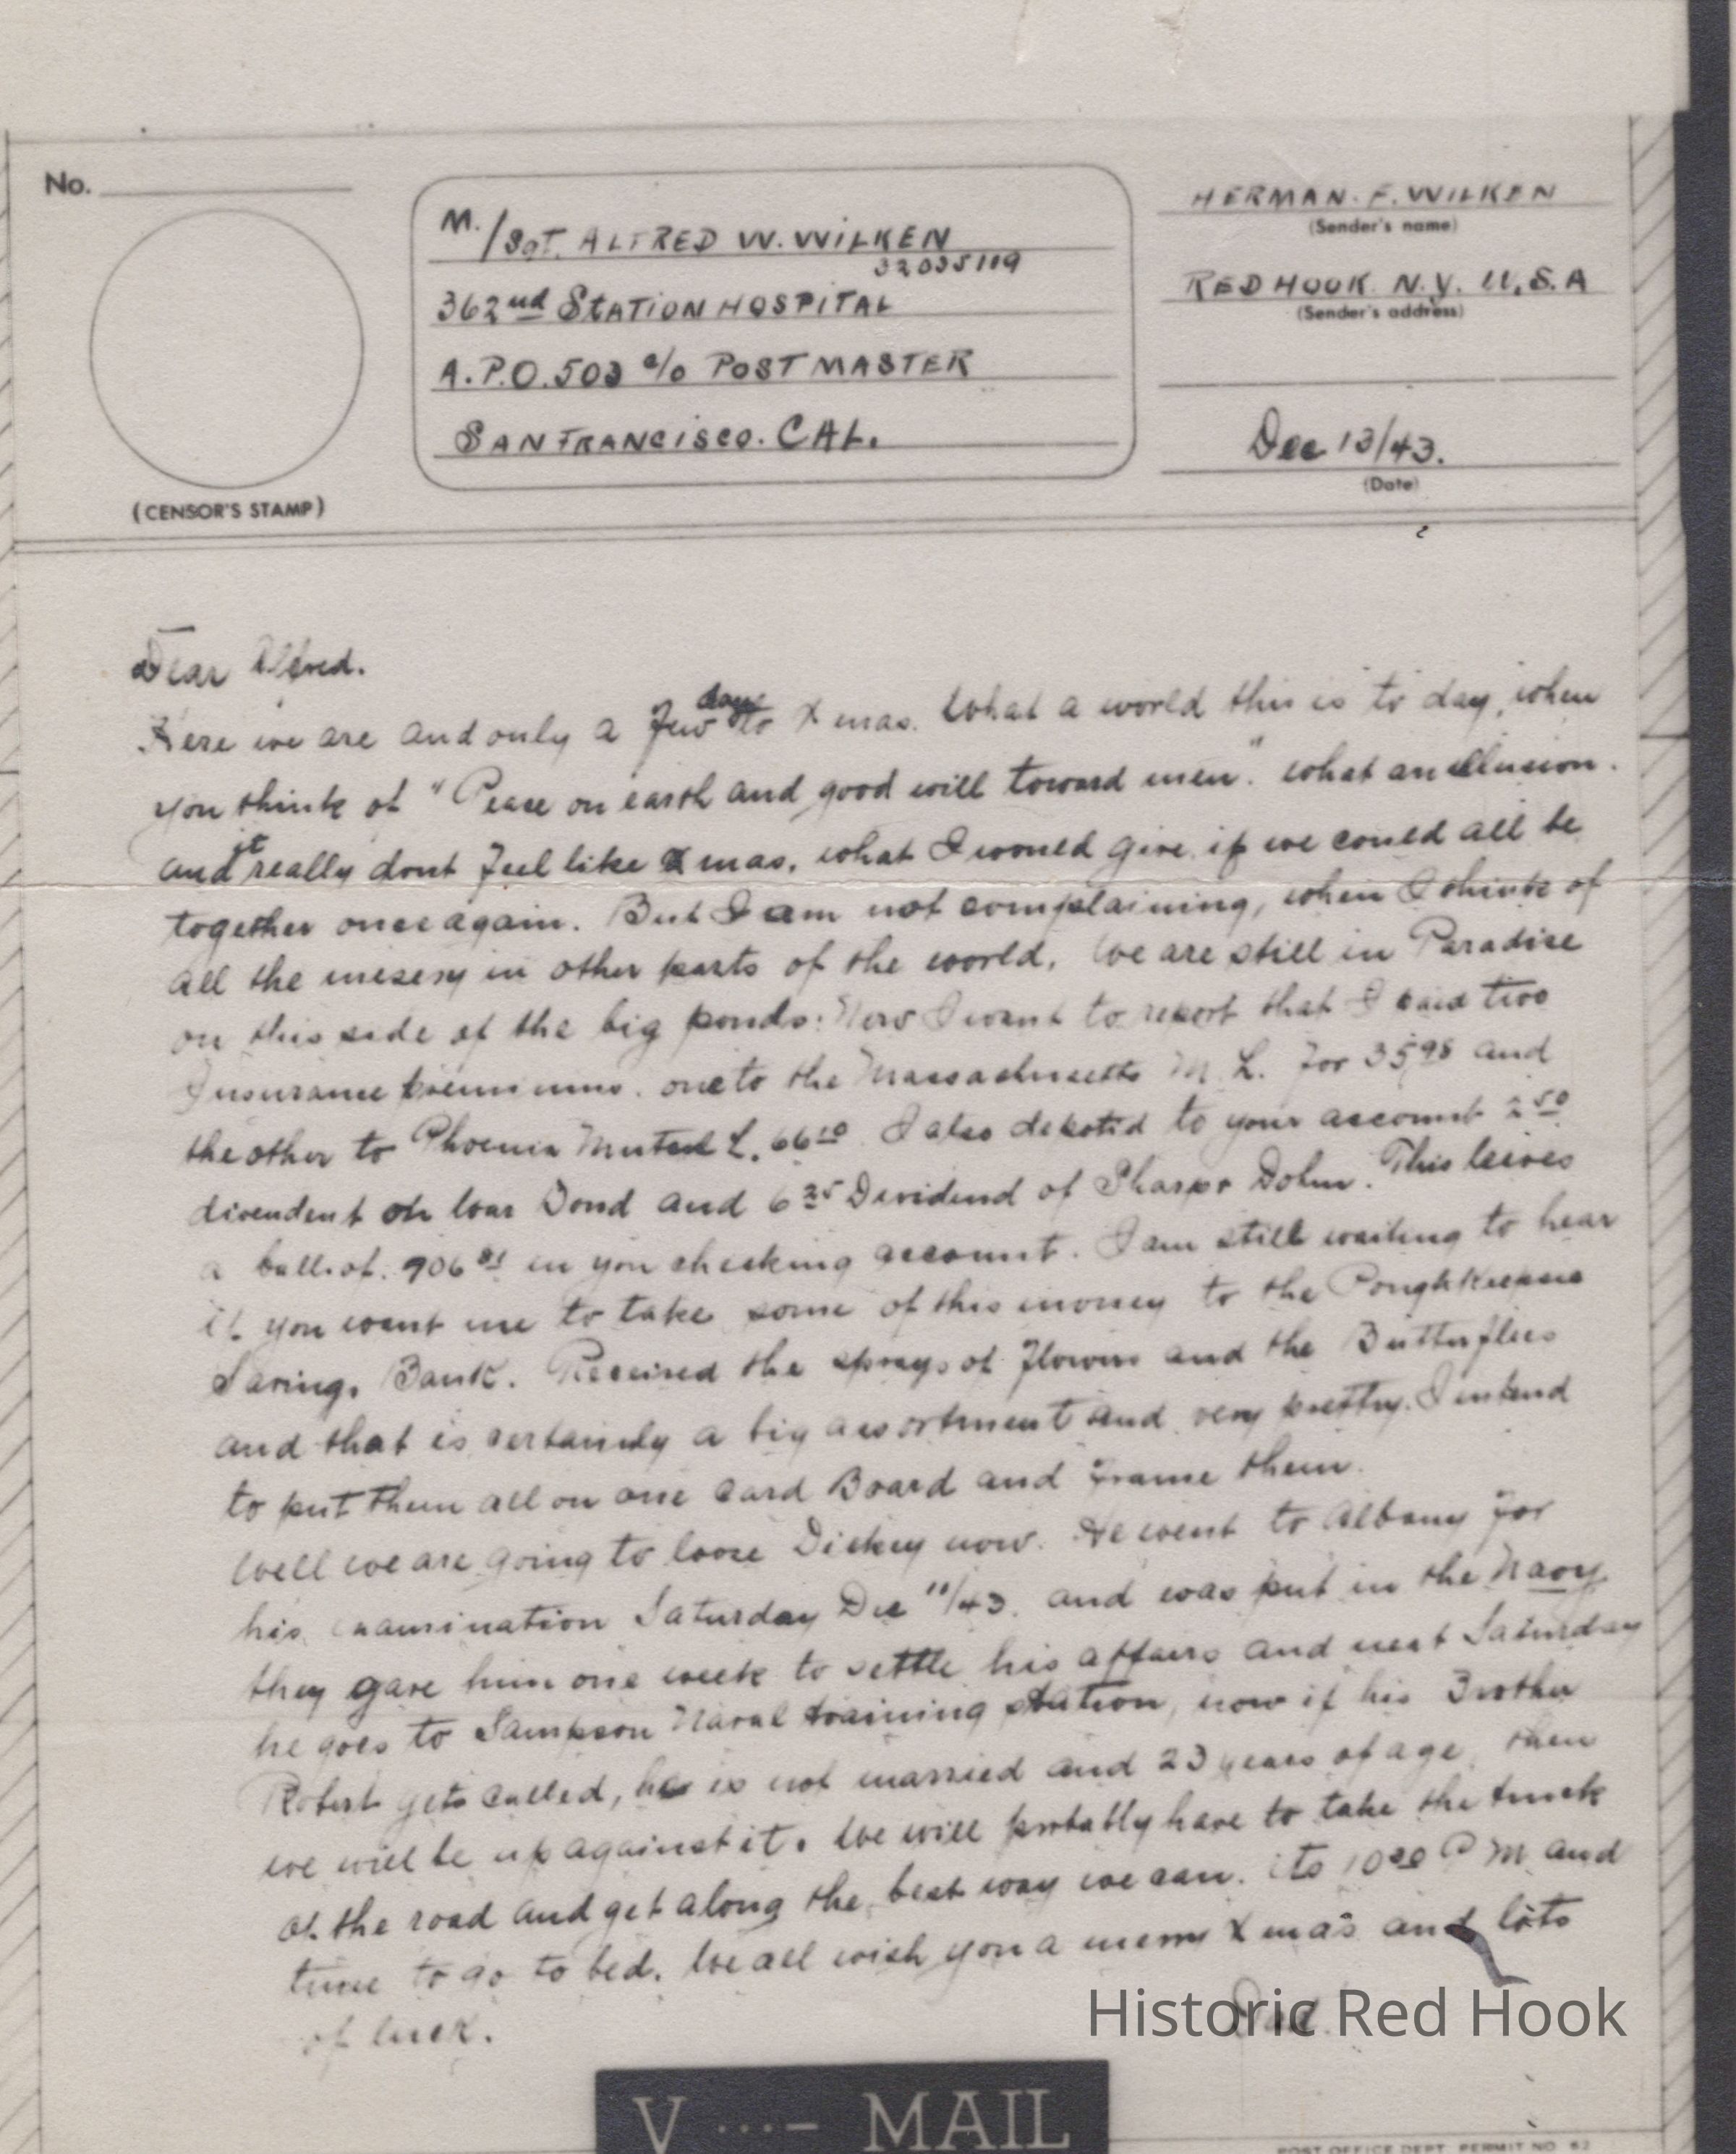 No.
(CENSOR'S STAMP)
M./Sgt. ALFRED W. WILKEN
32035119
362nd STATION HOSPITAL
A.P.O. 503 c/o POSTMASTER
SAN FRANCISCO. CAL.
HERMAN. F. WILKEN
(Sender's name)
RED HOOK N.Y. U.S.A
(Sender's address)
Dec 13/43.
(Date)
Dear Alfred.
Here we are and only a few days to Xmas. What a world this is to day, when
you think of "Peace on earth and good will toward men". what an illusion.
and it really dont feel like Xmas. what I would give if we could all be
together once again. But I am not complaining, when I think of
all the misery in other parts of the world. We are still in Paradise
on this side of the big ponds. Now I want to report that I paid two
Insurance premiums. one to the Massachusetts M. L. for 35.98 and
the other to Phoenix Mutual L. 66.10. I also deposted to your account 2.50
divendent on War Bond and 6.25 Dividend of Sharp & Dohm. This leives
a ball. of. 906.81 in you checking account. I am still waiting to hear
if you want me to take some of this money to the Poughkeepsie
Saving. Bank. Received the sprays of flowers and the Butterflies
and that is certainly a big assortment and very pretty. I intend
to put them all on one Card Board and frame them.
Well we are going to loose Dickey now. He went to Albany for
his examination Saturday Dec 11/43. and was put in the Navy.
they gave him one week to settle his affairs and next Saturday
he goes to Sampson Naval training station, now if his Brother
Robert gets called, he is not married and 23 years of age, then
we will be up against it. We will probably have to take the truck
of the road and get along the best way we can. its 10 P M and
time to go to bed. We all wish you a merry Xmas and lots
of luck.
Dad.
Historic Red Hook
V ...– MAIL
POST OFFICE DEPT. PERMIT NO.